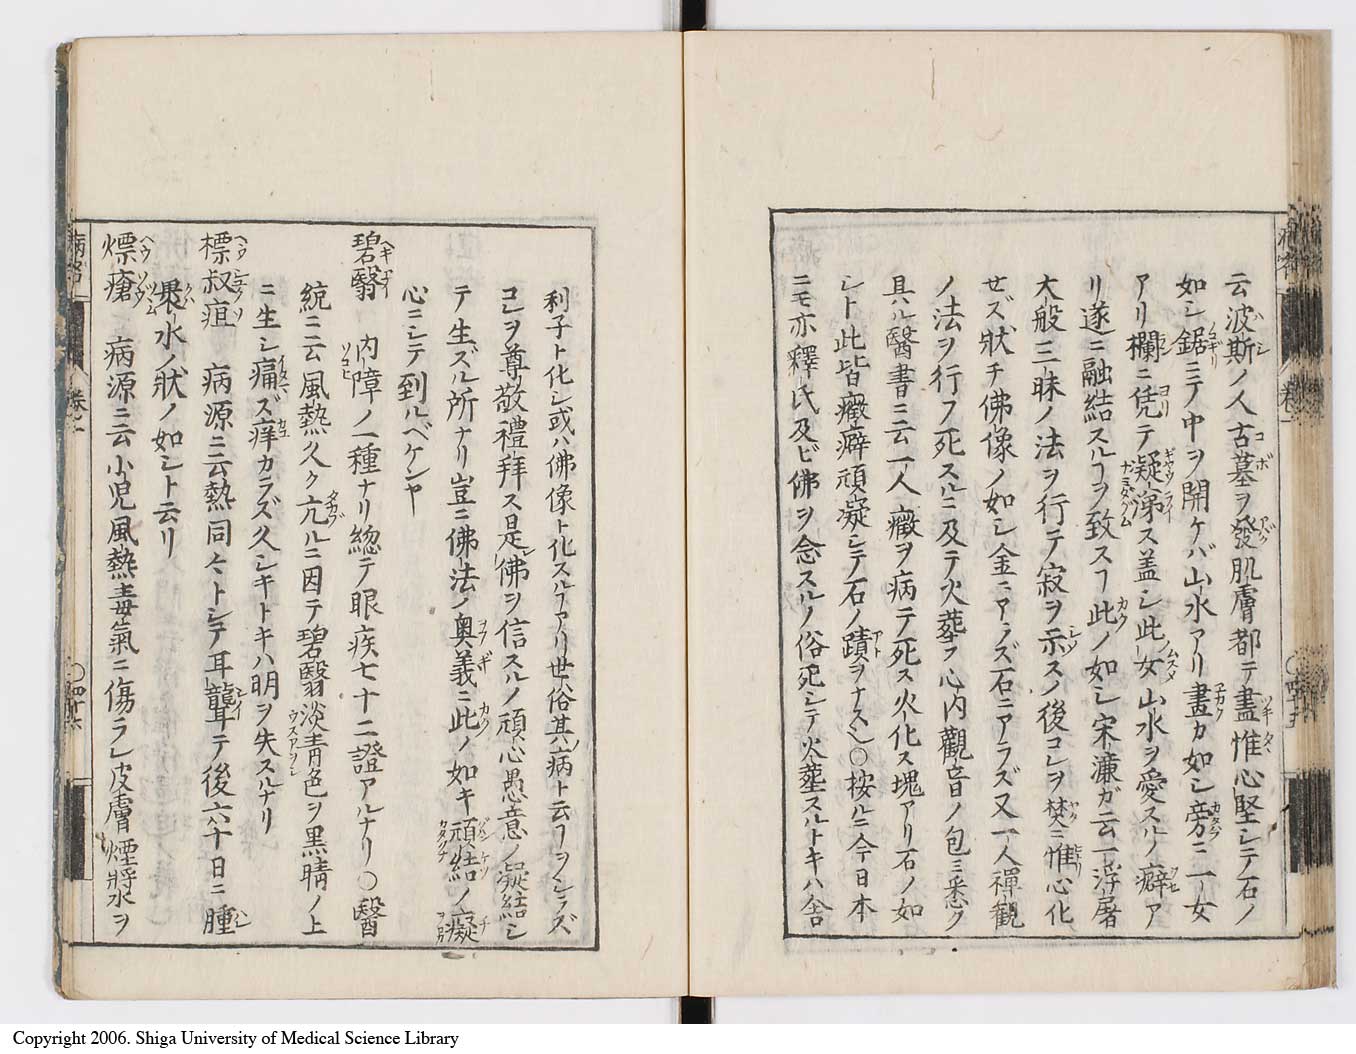 云波斯ノ人古墓ヲ發肌膚都テ盡惟心堅シテ石ノ
如シ鋸ミテ中ヲ開ケバ山水アリ畫カ如シ旁ニ一女
アリ欄ニ凭テ凝涕ス盖シ此女山水ヲ愛スルノ癖ア
リ遂ニ融結スルヿヲ致スヿ此ノ如シ宋濂ガ云一浮屠
大般三昧ノ法ヲ行テ寂ヲ示スノ後コレヲ焚ニ惟心化
せズ狀チ佛像ノ如シ金ニアラズ石ニアラズ又一人禪觀
ノ法ヲ行フ死スルニ及テ火葬ス心内觀音ノ包ミ悉ク
具ハル醫書ニ云一人癥ヲ病テ死ス火化ス塊アリ石ノ如
シト此皆癥癖頑凝シテ石ノ蹟ヲナス〇按ルニ今日本
ニモ亦釋氏及ビ佛ヲ念スルノ俗死シテ火葬スルトキハ舎
利子ト化シ或ハ佛像ト化スルヿアリ世俗其ノ病ト云フヲシラズ
コレヲ尊敬禮拜ス是佛ヲ信スルノ頑心愚意ノ凝結シ
テ生ズル所ナリ豈ニ佛法ノ奥義ニ此ノ如キ頑結ノ癡
心ニシテ到ルベケンヤ
碧翳 内障ノ一種ナリ總テ眼疾七十二證アルナリ〇醫
統ニ云風熱久ク亢ルニ因テ碧翳淡青色ヲ黒睛ノ上
ニ生シ痛マズ痒カラズ久シキトキハ明ヲ失スルナリ
標叔疽 病源ニ云熱同々トシテ耳聾テ後六十日ニ腫
裹水ノ狀ノ如シト云リ
熛瘡 病源ニ云小児風熱毒氣ニ傷ラレ皮膚煙將水ヲ
病名
卷
〇四十五
〇四十六
Copyright 2006. Shiga University of Medical Science Library